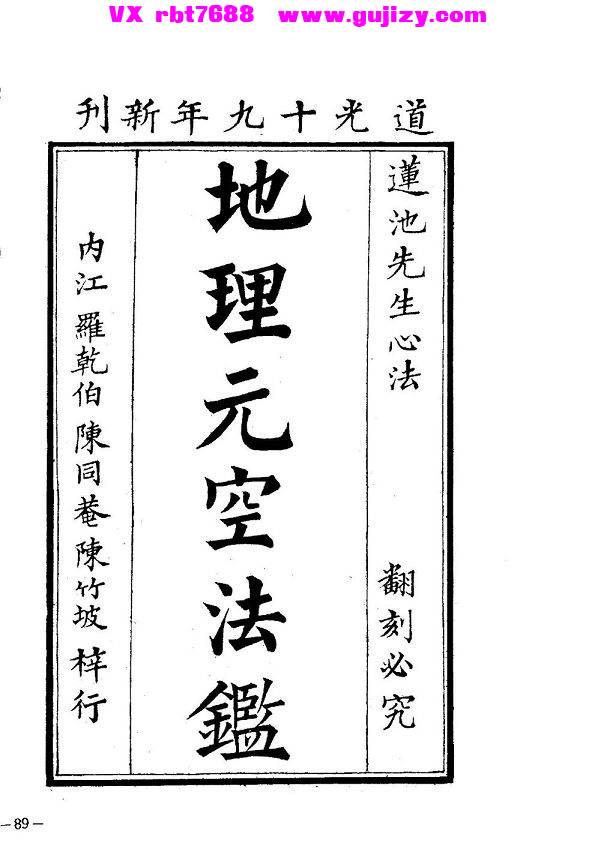 VX rbt7688 www.gujizy.com
道光十九年新刊
蓮池先生心法
翻刻必究
地理元空法鑑
內江 羅乾伯 陳同菴 陳竹坡 梓行
—89—